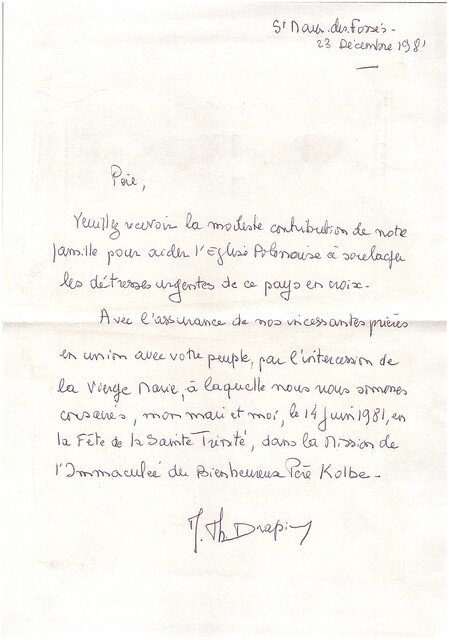 St Maur-des-Fossés-
23 Décembre 1981
Père,
Veuillez recevoir la modeste contribution de notre
famille pour aider l'Eglise Polonaise à soulager
les détresses urgentes de ce pays en croix-
Avec l'assurance de nos incessantes prières
en union avec votre peuple, par l'intercession de
la Vierge Marie, à laquelle nous nous sommes
consacrés, mon mari et moi, le 14 juin 1981, en
la Fête de la Sainte Trinité, dans la Mission de
l'Immaculée du Bienheureux Père Kolbe-
Th. Drapi